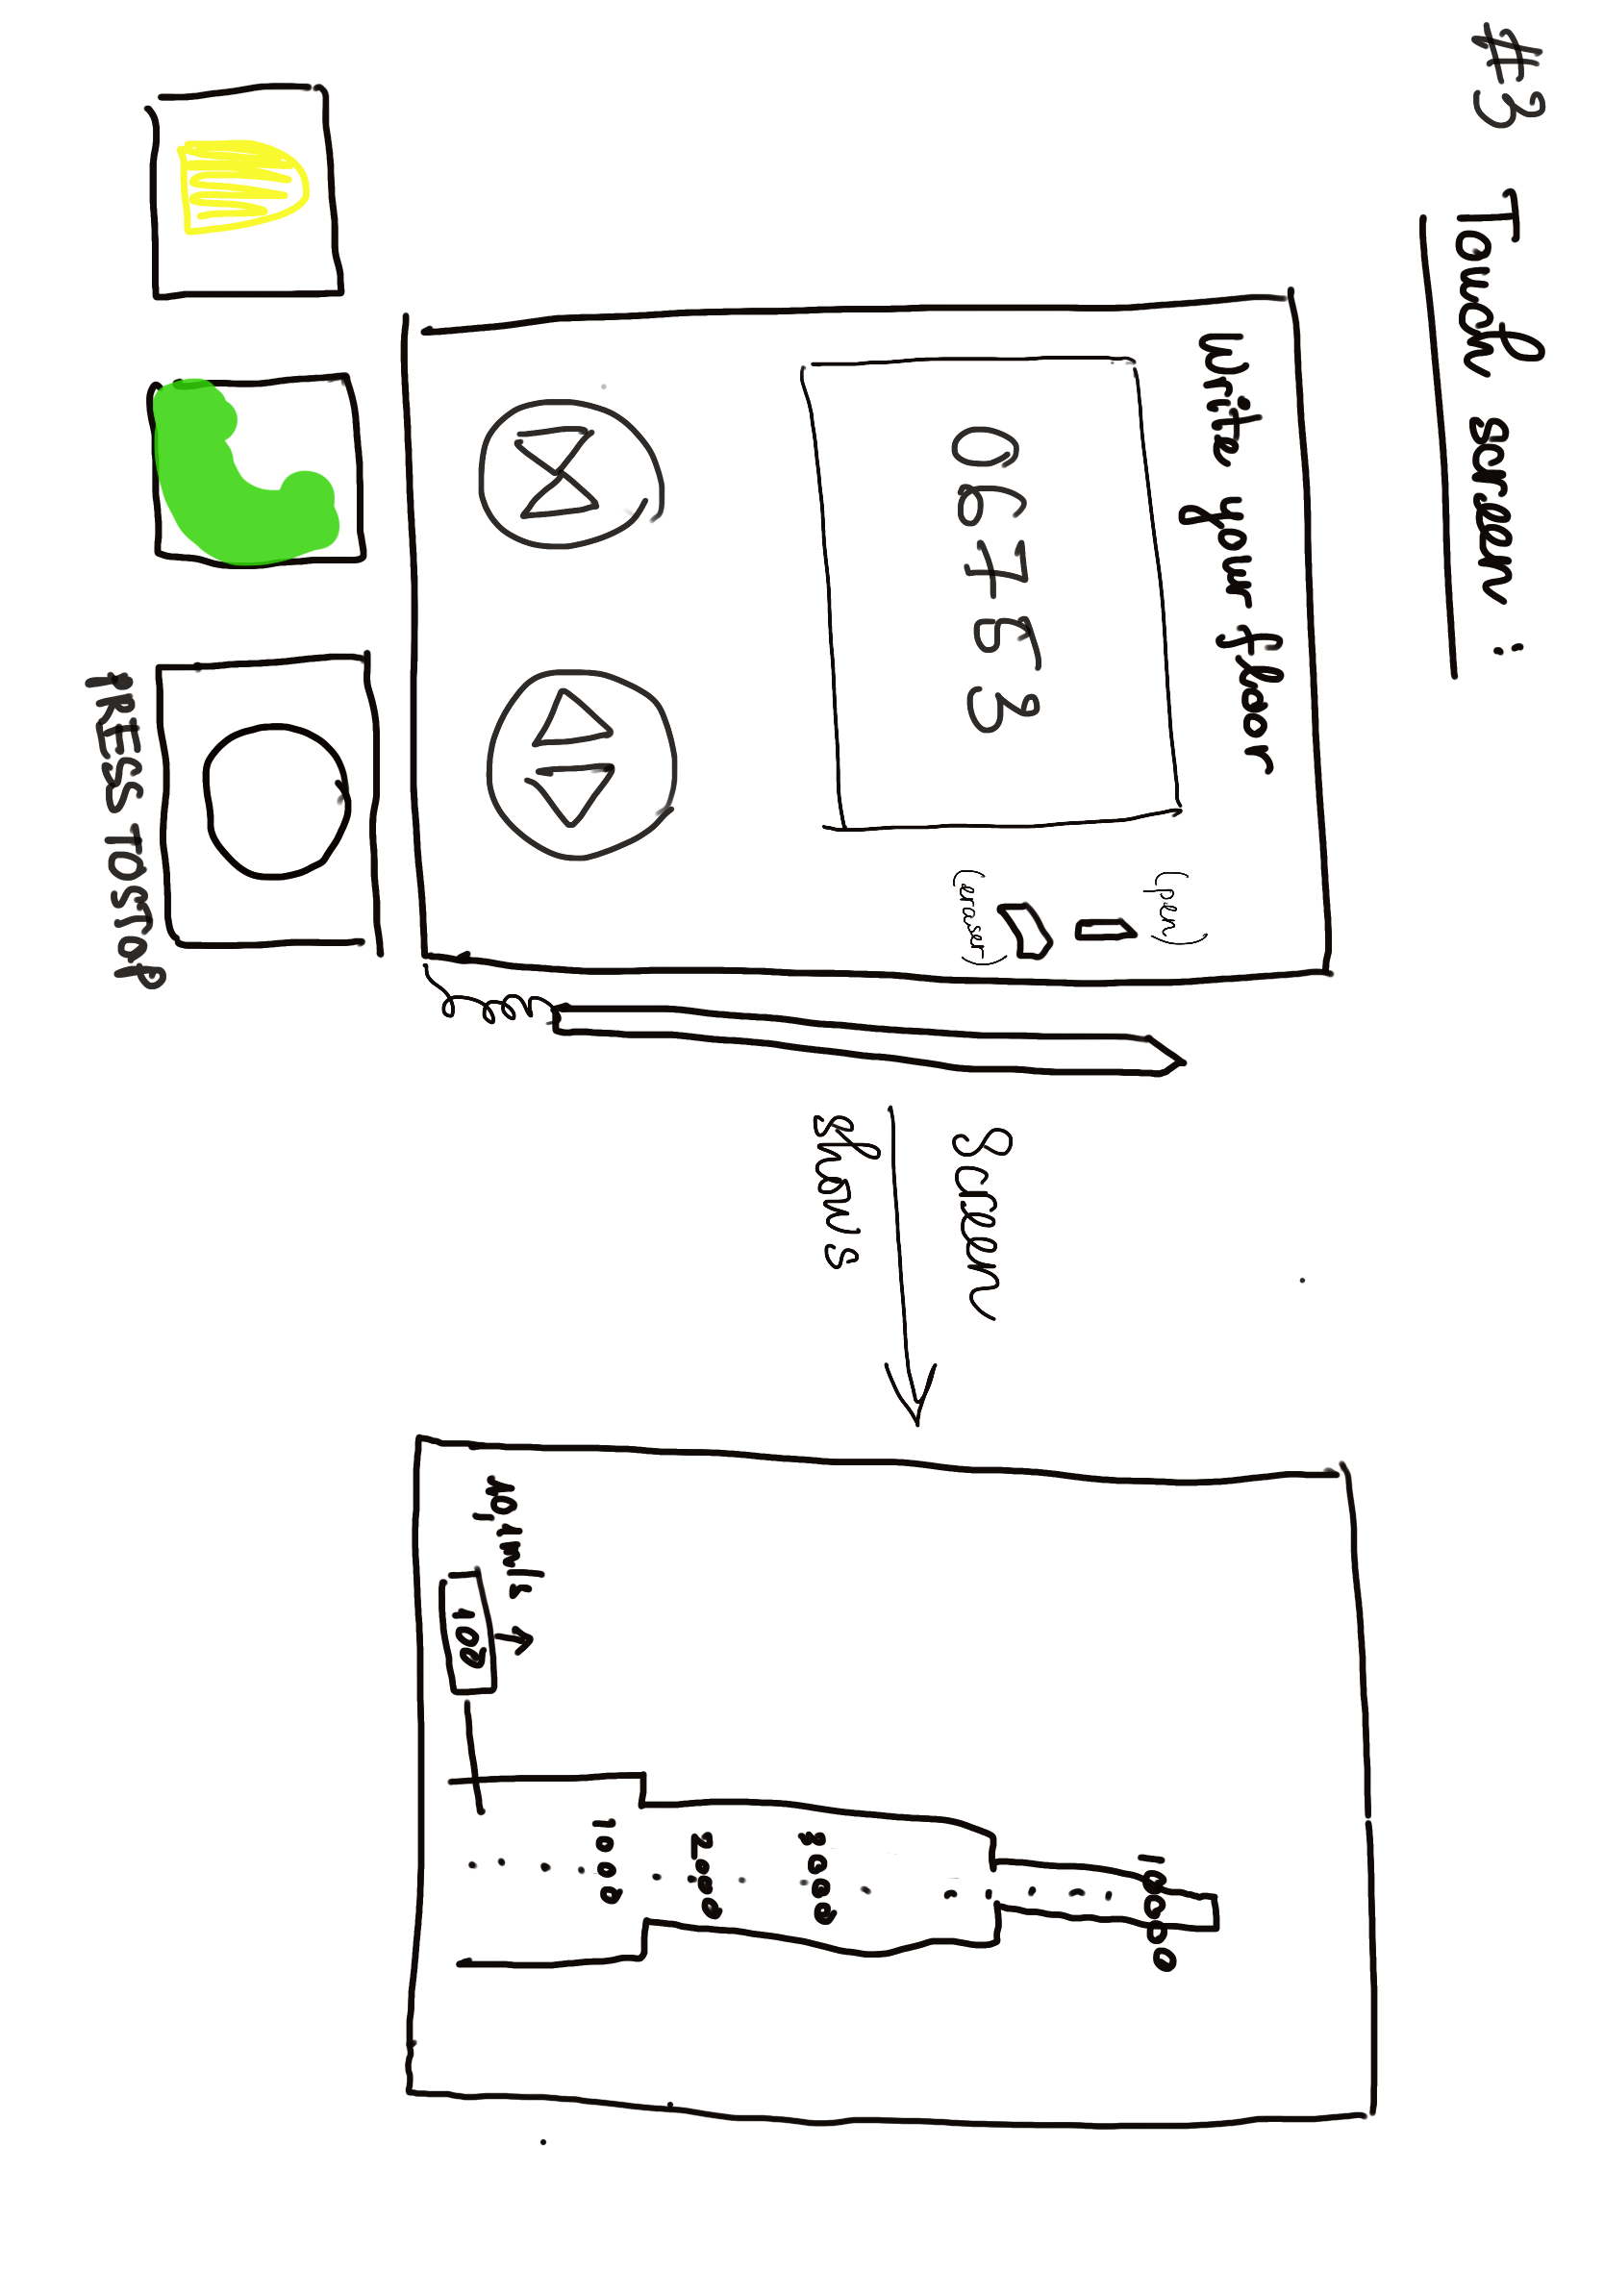 #3 Touch screen :
Write your floor
(pen)
06753
(eraser)
PRESS TO STOP
Screen
shows
10000
3000
2000
1000
10,1m/s
100